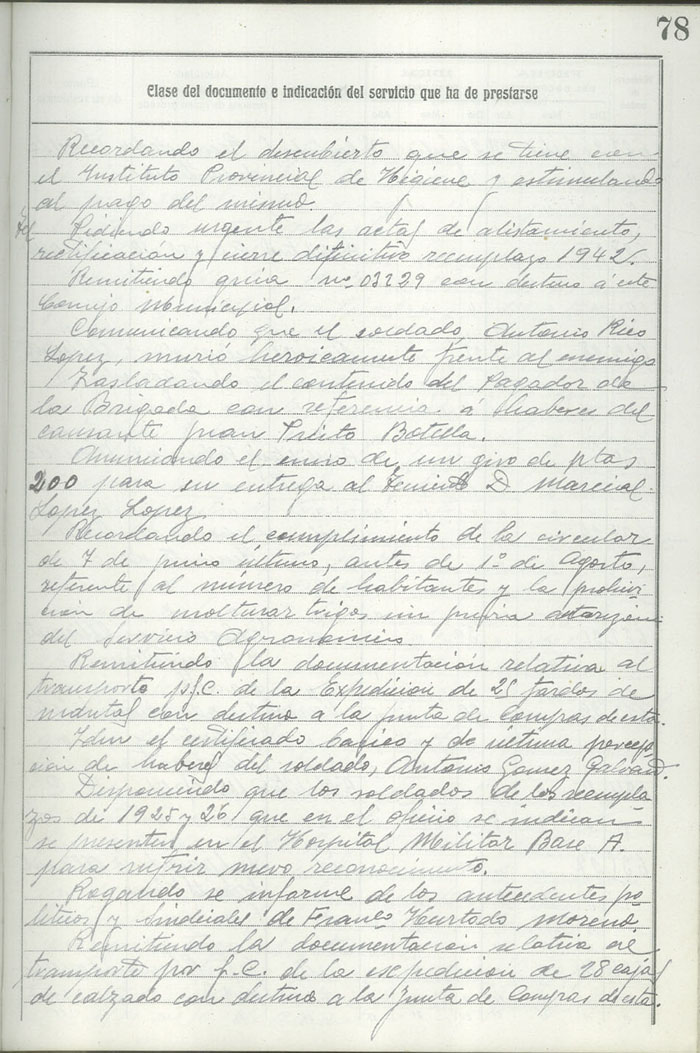 78
Clase del documento e indicación del servicio que ha de prestarse
Recordando el descubierto que se tiene con
el Instituto Provincial de Higiene y estimulando
al pago del mismo.
Pidiendo urgente las actas de alistamiento,
rectificación y cierre difinitivo reemplazo 1942.
Remitiendo guia nº 03229 con destino á este
Consejo Municipal.
Comunicando que el soldado, Antonio Rico
Lopez, murió heroicamente frente al enemigo
Trasladando el contenido del Pagador de
la Brigada con referencia á haberes del
causante Juan Prieto Botella.
Anunciando el envio de un giro de ptas
200 para su entrega al Teniente D Marcial
Lopez Lopez
Recordando el cumplimiento de la circular
de 7 de junio último, antes de 1º de Agosto,
referente al número de habitantes y la prohivi
cion de molturar trigos sin previa
del Servicio Agronomico
Remitiendo la documentación relativa al
transporte p.f.C. de la Expedicion de 25 fardos de
con destino a la Junta de Compras de esta.
Idem el certificado basico y de última percep
cion de haberes del soldado, Antonio Gomez
Disponiendo que los soldados de los reempla
zos de 1925 y 26 que en el oficio se indican
se presenten en el Hospital Militar Base A.
para sufrir nuevo reconocimiento.
Rogando se informe de los antecedentes po
liticos y sindicales de Franco Hurtado Moreno.
Remitiendo la documentacion relativa al
transporte por f.C. de la expedicion de 28 cajas
de calzado con destino a la Junta de Compras de esta.